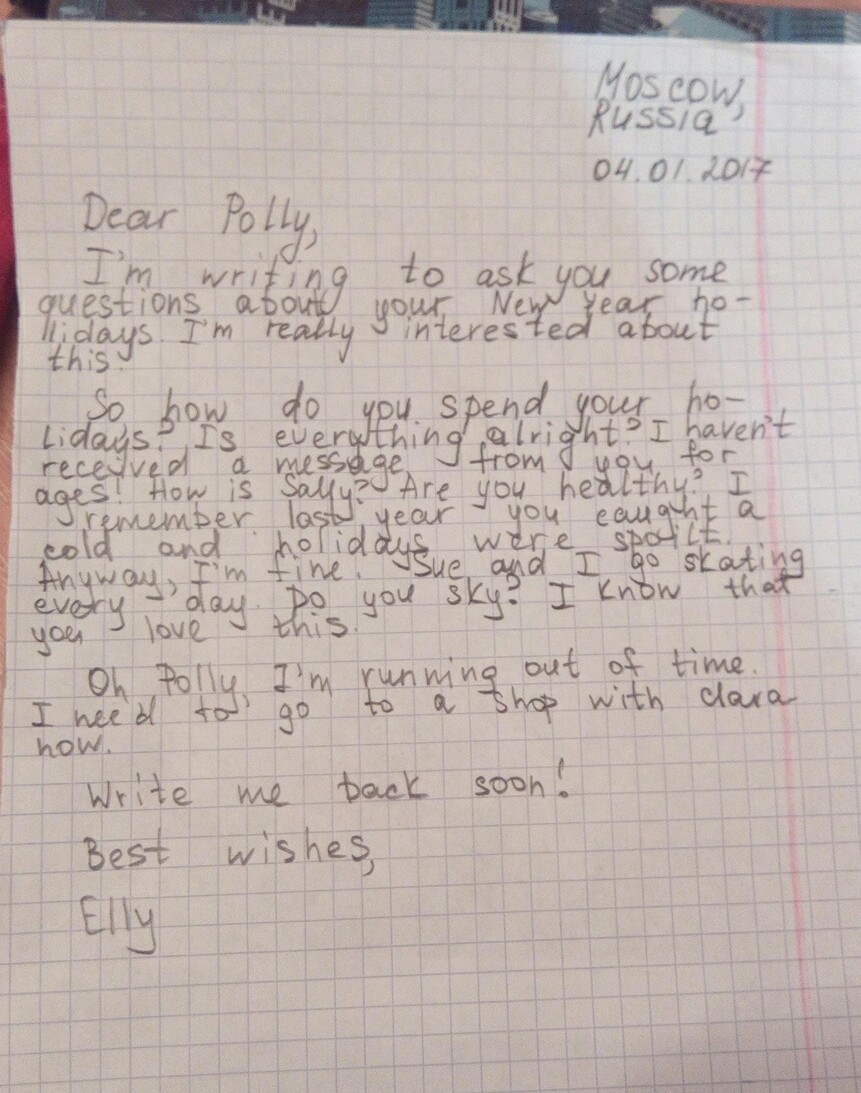 Moscow,
Russia
04.01.2017
Dear Polly,
I'm writing to ask you some
questions about your New Year ho-
llidays. I'm really interested about
this.
So how do you spend your ho-
lidays? Is everything alright? I haven't
received a message from you for
ages! How is Sally? Are you healthy? I
remember last year you caught a
cold and holidays were spoilt.
Anyway, I'm fine. Sue and I go skating
every day. Do you sky? I know that
you love this.
Oh Polly, I'm running out of time.
I need to go to a shop with Clara
now.
Write me back soon!
Best wishes,
Elly